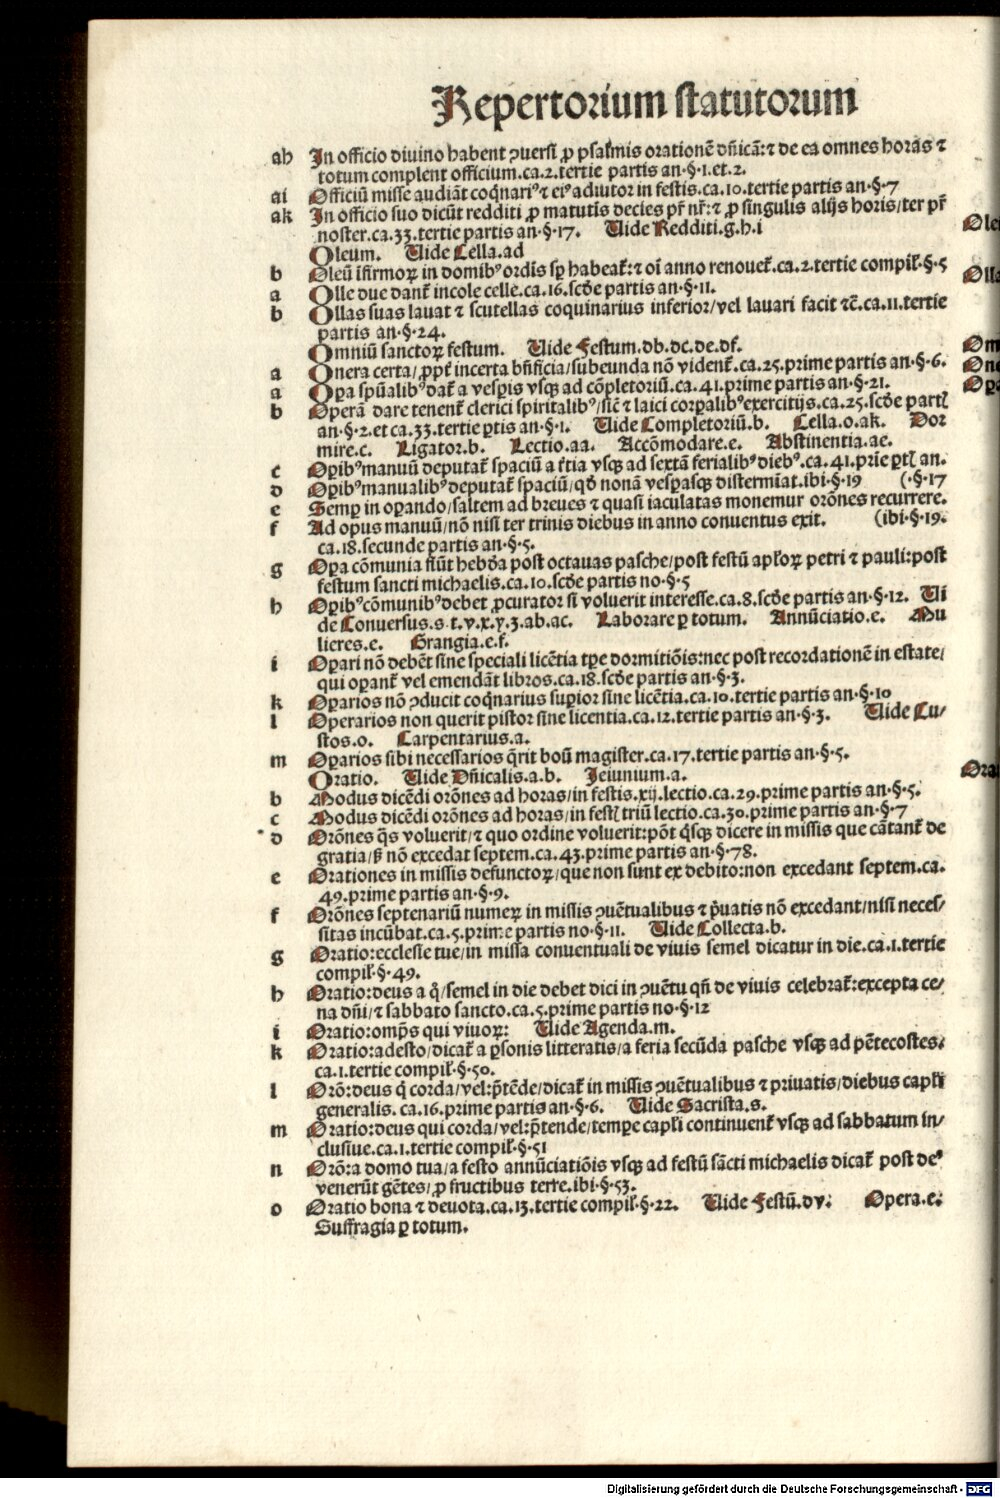 Repertorium statutorum
ah In officio diuino habent ꝯuersi ꝓ psalmis orationē dn̄icā:⁊ de ea omnes horas ⁊
totum complent officium.ca.2.tertie partis an·§·1.et.2.
ai Officiū misse audiāt coq̄nariꝰ⁊ eiꝰ adiutor in festis.ca.10.tertie partis an·§·7
ak In officio suo dicūt redditi ꝓ matutis decies pr̄ nr̄:⁊ ꝓ singulis alijs horis/ter pr̄
noster.ca.33.tertie partis an·§·17. Uide Redditi.g.h.i
Oleum. Uide Cella.ad
b Oleū īfirmoꝝ in domibꝰordīs sꝑ habeat̄:⁊ oī anno renouet̄.ca.2.tertie compil̄·§·5
a Olle due dant̄ incole celle.ca.16.scd̄e partis an·§·11.
b Ollas suas lauat ⁊ scutellas coquinarius inferior/vel lauari facit ⁊c̄.ca.11.tertie
partis an·§·24.
Omniū sanctoꝝ festum. Uide Festum.db.dc.de.df.
a Onera certa/ꝓpt̄ incerta bn̄ficia/subeunda nō vident̄.ca.25.prime partis an·§·6.
a Oꝑa spūalibꝰdat̄ a vesꝑis vsqꝫ ad cōpletoriū.ca.41.prime partis an·§·21.
b Operā dare tenent̄ clerici spiritalibꝰ/sic̄ ⁊ laici corꝑalibꝰexercitijs.ca.25.scd̄e partꝭ
an·§·2.et ca.33.tertie ꝑtis an·§·1. Uide Completoriū.b. Cella.o.ak. Dor
mire.c. Ligator.b. Lectio.aa. Accōmodare.e. Abstinentia.ae.
c Oꝑibꝰmanuū deputat̄ spaciū a t̄tia vsqꝫ ad sextā ferialibꝰdiebꝰ.ca.41.prīe ꝑtꝭ an.
d Oꝑibꝰmanualibꝰdeputat̄ spaciū/qd̄ nonā vesꝑasqꝫ distermīat.ibi·§·19 (·§·17
e Semꝑ in oꝑando/saltem ad breues ⁊ quasi iaculatas monemur orōnes recurrere.
f Ad opus manuū/nō nisi ter trinis diebus in anno conuentus exit. (ibi·§·19.
ca.18.secunde partis an·§·5.
g Oꝑa cōmunia fiūt hebd̄a post octauas pasche/post festū apl̄oꝝ petri ⁊ pauli:post
festum sancti michaelis.ca.10.scd̄e partis no·§·5
h Oꝑibꝰcōmunibꝰdebet ꝓcurator si voluerit interesse.ca.8.scd̄e partis an·§·12. Ui
de Conuersus.s.t.v.x.y.z.ab.ac. Laborare ꝑ totum. Annūciatio.e. Mu
lieres.e. Grangia.e.f.
i Oꝑari nō debēt sine speciali licētia tp̄e dormitiōis:nec post recordationē in estate/
qui oꝑant̄ vel emendāt libros.ca.18.scd̄e partis an·§·3.
k Oꝑarios nō ꝯducit coq̄narius suꝑior sine licētia.ca.10.tertie partis an·§·10
l Operarios non querit pistor sine licentia.ca.12.tertie partis an·§·3. Uide Cu/
stos.o. Carpentarius.a.
m Oꝑarios sibi necessarios q̄rit boū magister.ca.17.tertie partis an·§·5.
Oratio. Uide Dn̄icalis.a.b. Jeiunium.a.
b Modus dicēdi orōnes ad horas/in festis.xij.lectio.ca.29.prime partis an·§·5.
c Modus dicēdi orōnes ad horas/in festꝭ triū lectio.ca.30.prime partis an·§·7
d Orōnes q̄s voluerit/⁊ quo ordine voluerit:pōt q̄sqꝫ dicere in missis que cātant̄ de
gratia/ꝭ nō excedat septem.ca.43.prime partis an·§·78.
e Orationes in missis defunctoꝝ/que non sunt ex debito:non excedant septem.ca.
49.prime partis an·§·9.
f Orōnes septenariū numeꝝ in missis ꝯuētualibus ⁊ p̄uatis nō excedant/nisi neces/
sitas incūbat.ca.5.prime partis no·§·11. Uide Collecta.b.
g Oratio:ecclesie tue/in missa conuentuali de viuis semel dicatur in die.ca.1.tertie
compil̄·§·49.
h Oratio:deus a q̄/semel in die debet dici in ꝯuētu qn̄ de viuis celebrat̄:excepta ce/
na dn̄i/⁊ sabbato sancto.ca.5.prime partis no·§·12
i Oratio:omp̄s qui viuoꝝ: Uide Agenda.m.
k Oratio:adesto/dicat̄ a ꝑsonis litteratis/a feria secūda pasche vsqꝫ ad pētecostes.
ca.1.tertie compil̄·§·50.
l Orō:deus q̄ corda/vel:p̄tēde/dicat̄ in missis ꝯuētualibus ⁊ priuatis/diebus capl̄i
generalis. ca.16.prime partis an·§·6. Uide Sacrista.s.
m Oratio:deus qui corda/vel:p̄tende/tempe capl̄i continuent̄ vsqꝫ ad sabbatum in/
clusiue.ca.1.tertie compil̄·§·51
n Orō:a domo tua/a festo annūciatiōis vsqꝫ ad festū sācti michaelis dicat̄ post deꝰ
venerūt gētes/ꝓ fructibus terre.ibi·§·53.
o Oratio bona ⁊ deuota.ca.13.tertie compil̄·§·22. Uide Festū.dv. Opera.e.
Suffragia ꝑ totum.
Digitalisierung gefördert durch die Deutsche Forschungsgemeinschaft - DFG